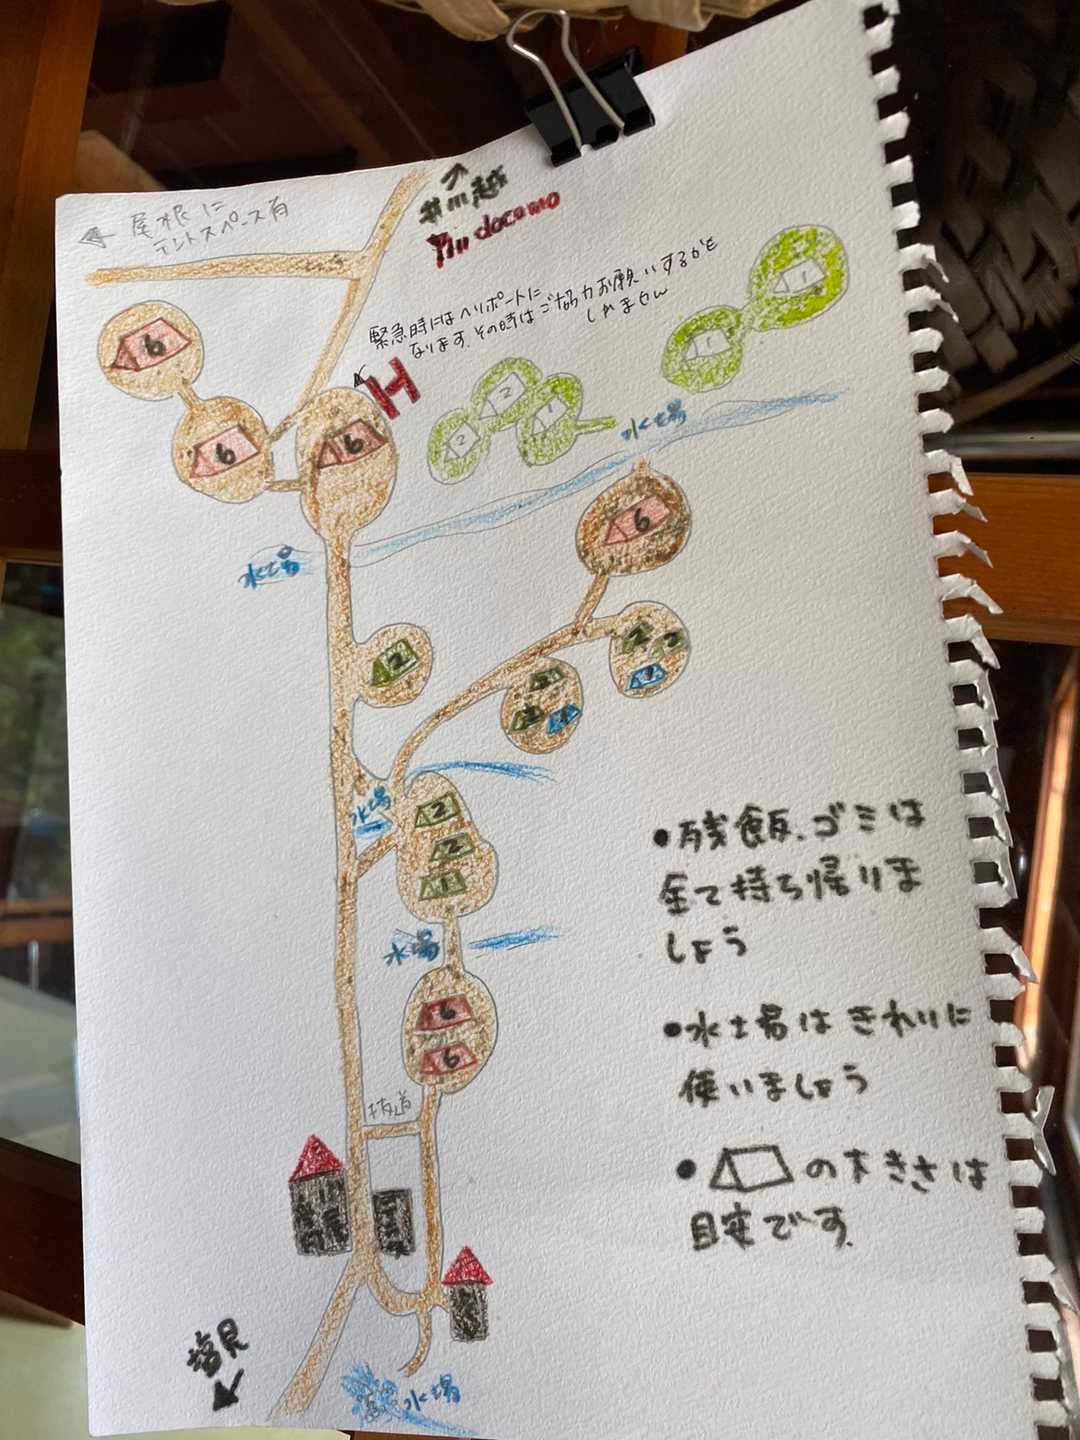 尾根に
テントスペース有
井川越
docomo
緊急時にはヘリポートに
なります。その時はご協力お願いするかも
しれません
H
1
1
2
2
1
6
6
6
水場
水場
6
2
2
2
1
2
2
1
水場
2
2
1
水場
6
6
抜道
塩見
水場
●残飯、ゴミは
全て持ち帰りま
しょう
●水場はきれいに
使いましょう
●の大きさは
目安です。